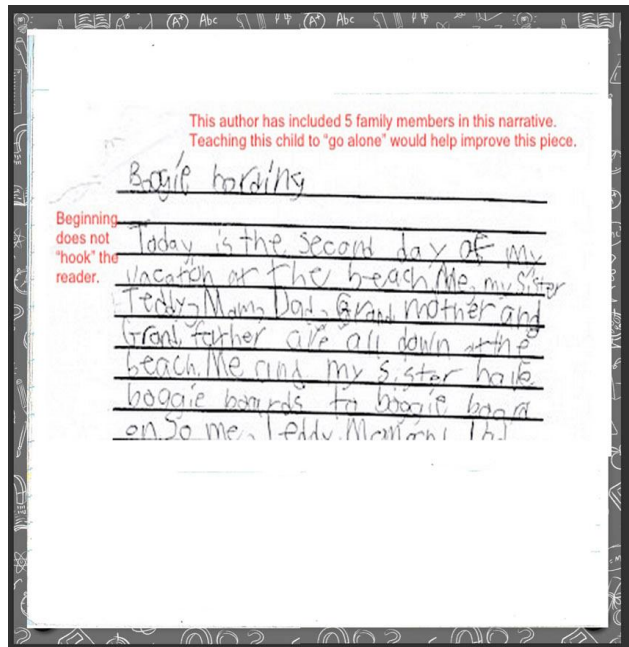 This author has included 5 family members in this narrative.
Teaching this child to "go alone" would help improve this piece.
Boogie bording
Beginning
does not
"hook" the
reader.
Today is the second day of my
vacation at the beach. Me, my sister
Teddy, Mom, Dad, Grand mother and
Grand father are all down at the
beach. Me and my sister have
boogie boards to boogie board
on So me, Teddy, Mom